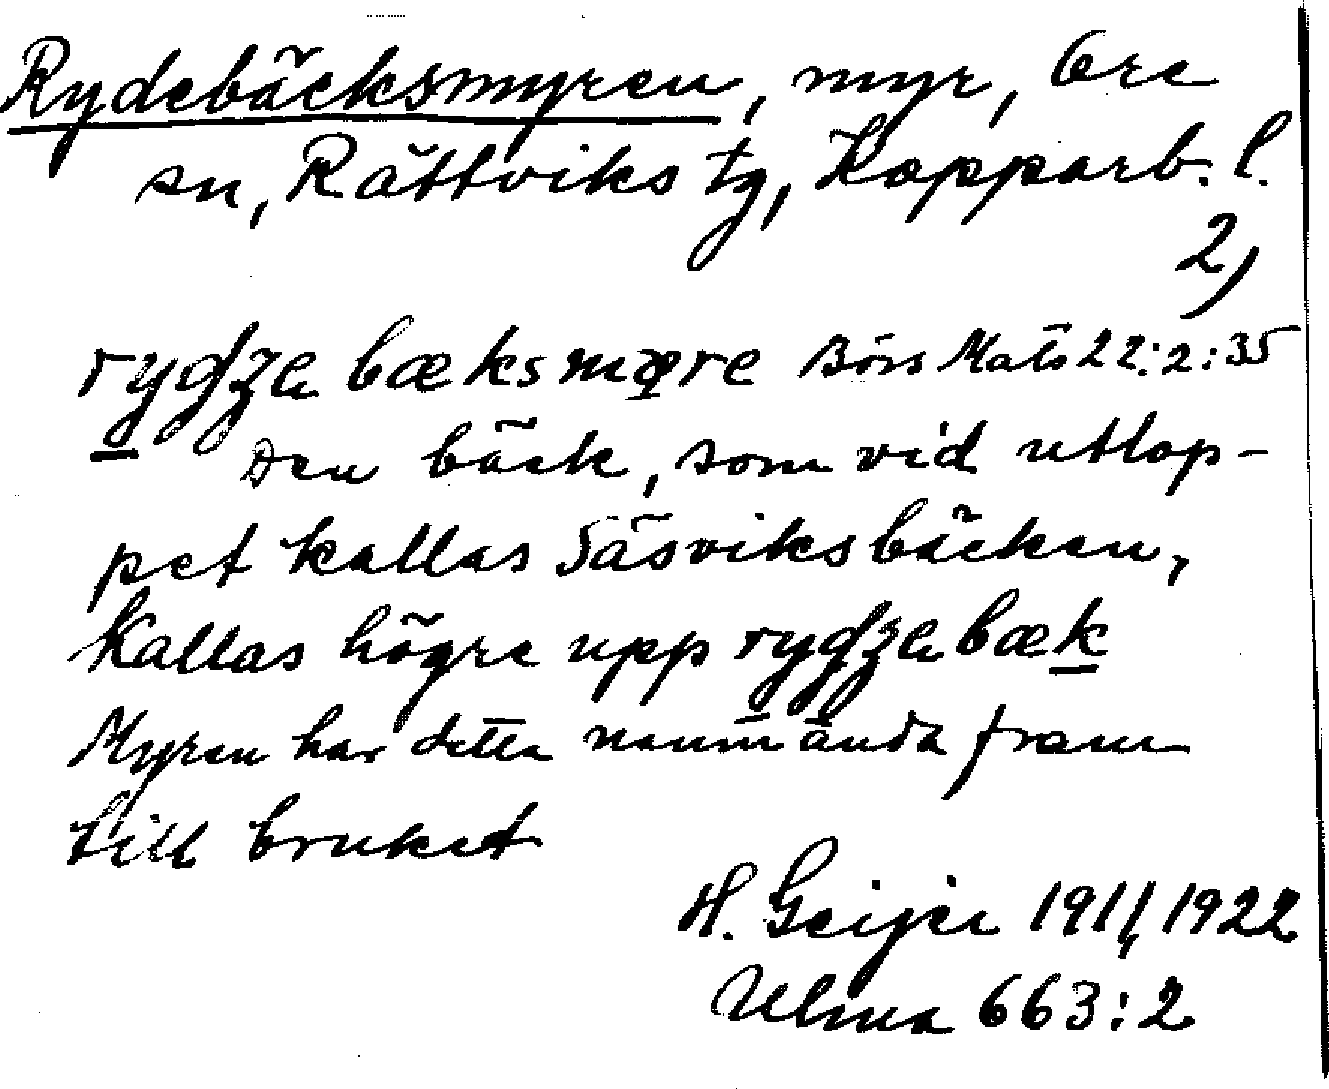 Rydebäcksmyren, myr, Ore
sn, Rättviks tg, Kopparb. l.
2)
rydʒa bæksmyre Börs Mats 22:2:35
Den bäck, som vid utlop-
pet kallas Säsviksbäcken,
kallas högre upp rydʒa bæk
Myren har detta namn ända fram
till bruket
H. Geijer 1911, 1922
Ulma 663:2